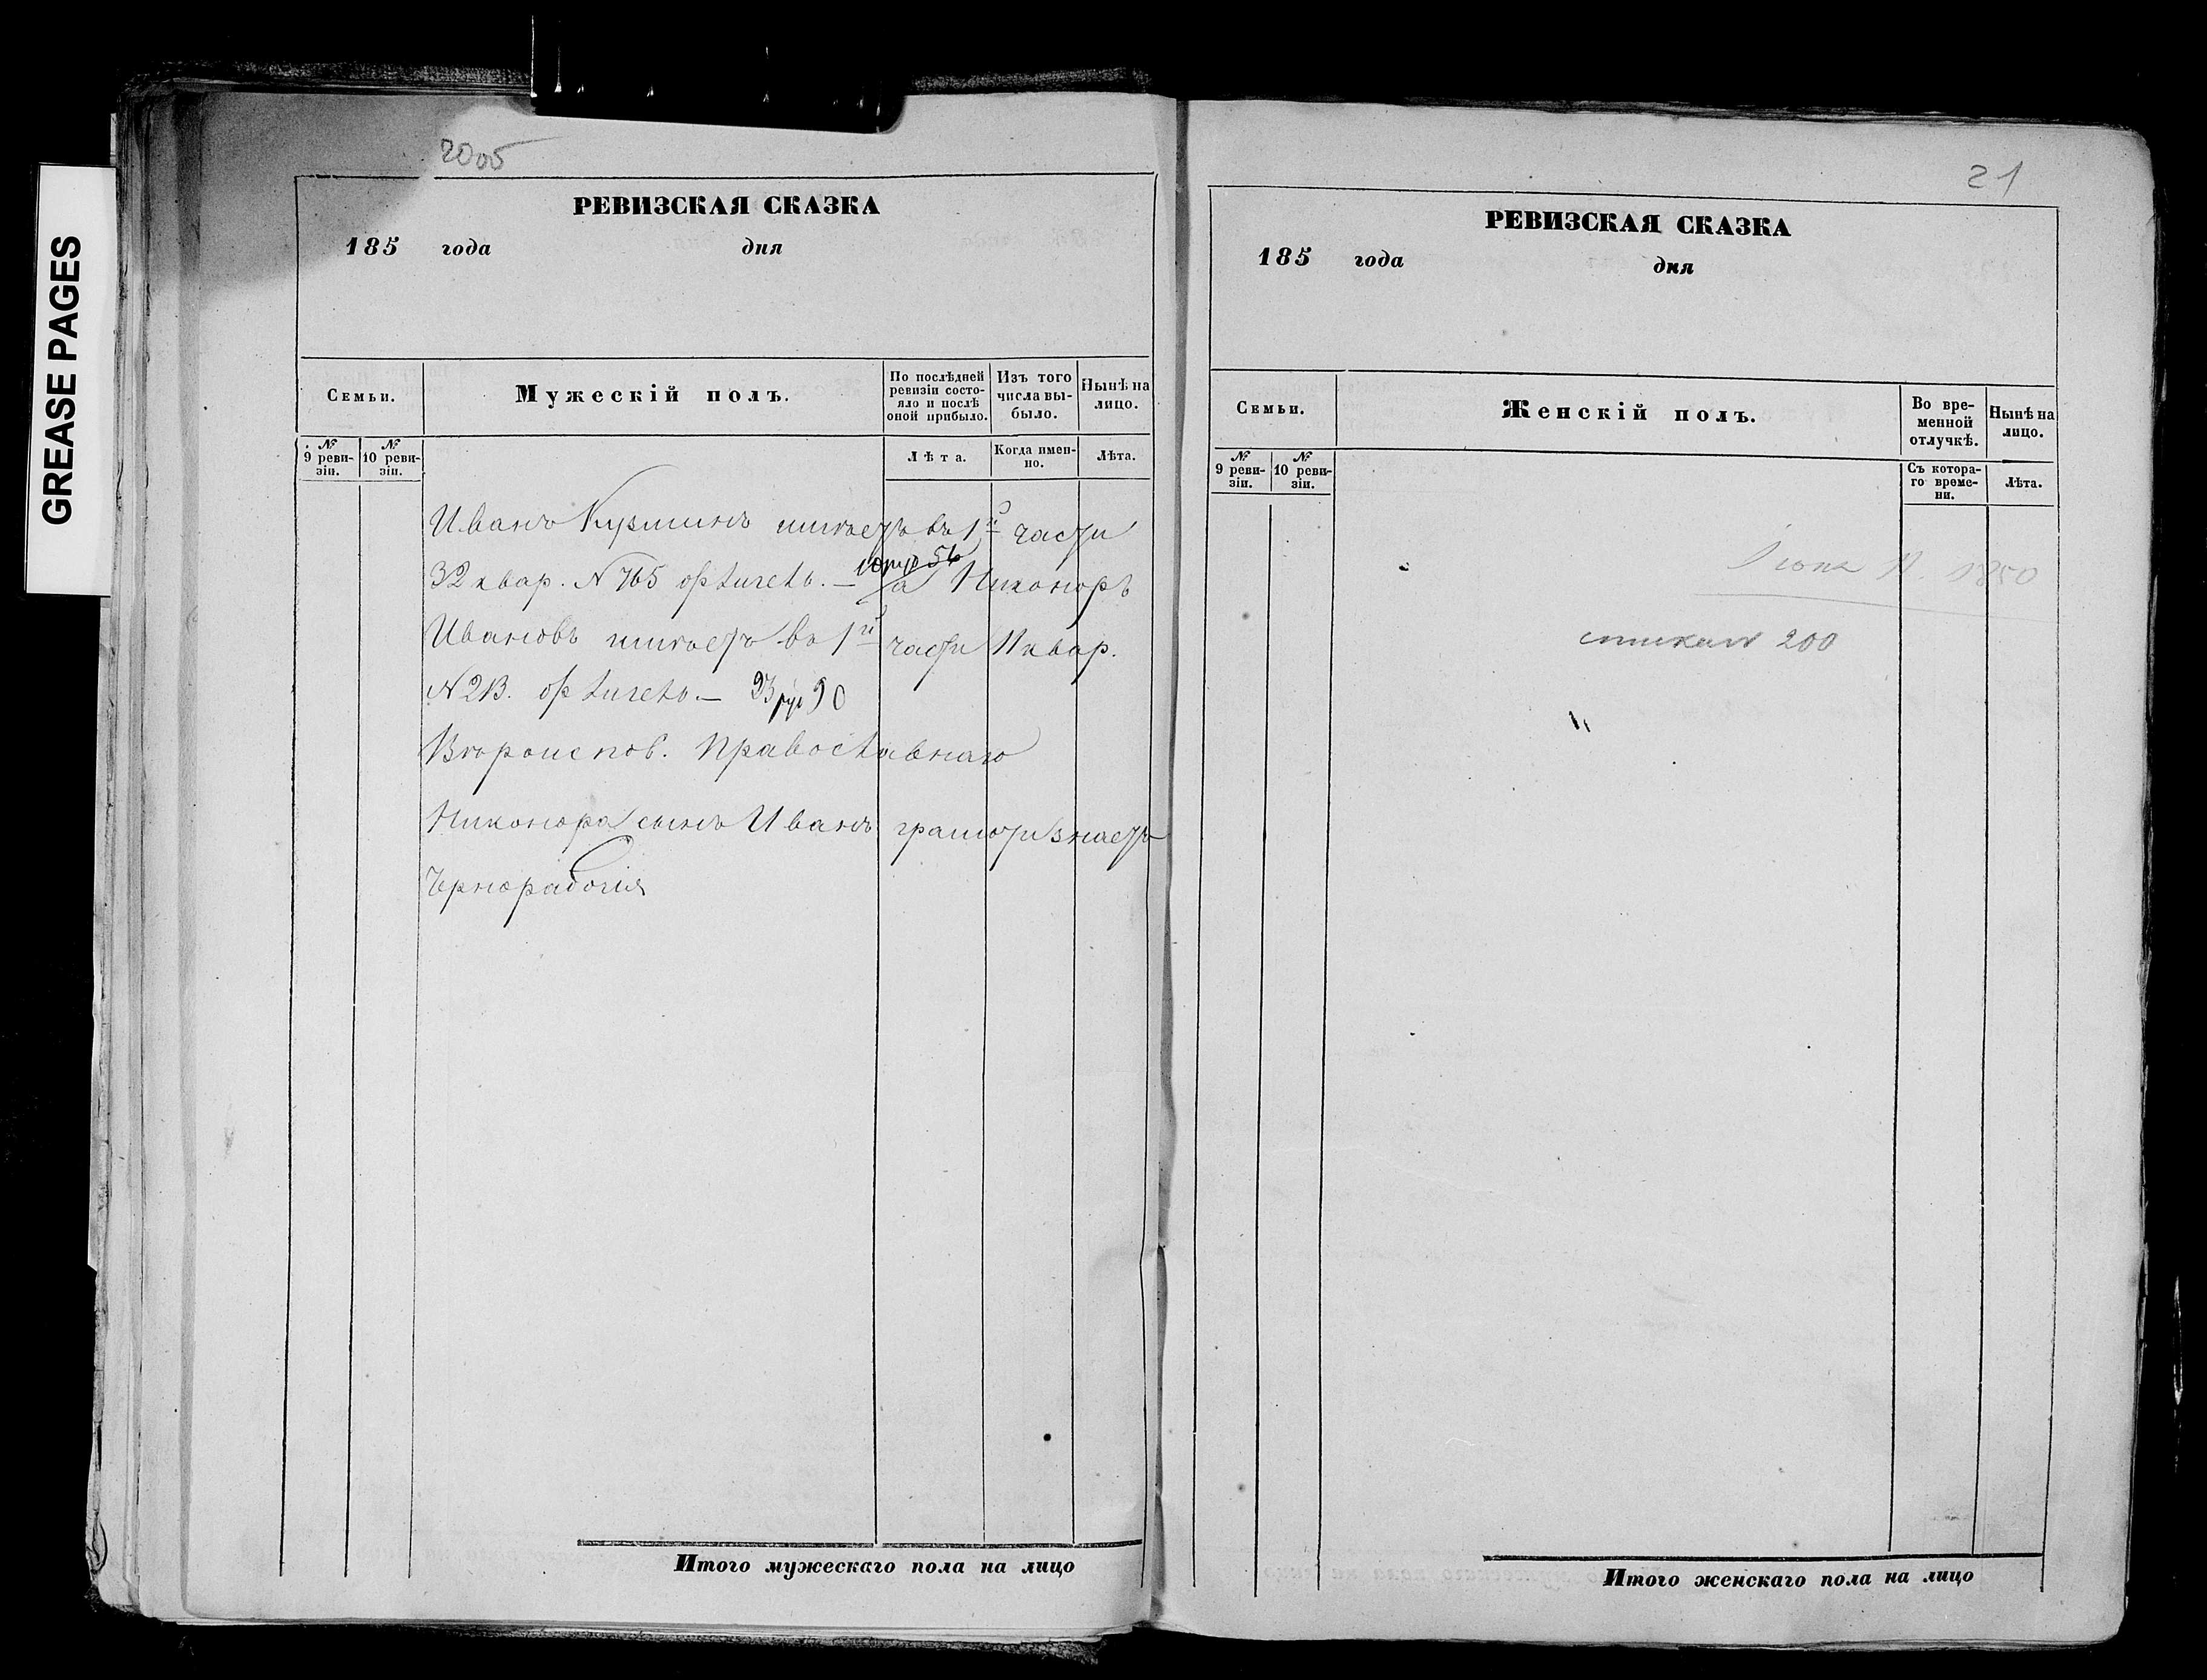 GREASE PAGES
2005
РЕВИЗСКАЯ СКАЗКА
185 года дня
Семьи.
Мужескій полъ.
По послѣдней ревизіи состояло и послѣ оной прибыло.
Изъ того числа выбыло.
Нынѣ на лицо.
№ 9 ревизіи.
№ 10 ревизіи.
Лѣта.
Когда именно.
Лѣта.
Иванъ Кузминъ имѣетъ въ 1й части
32 квар. N 765 а Никоноръ
Ивановъ имѣетъ въ 1й части 11 квар.
N 213. 23 руб 90
Вѣроиспов. Православнаго
Никонора сынъ Иванъ грамоти знаетъ
Чернорабочія
21
РЕВИЗСКАЯ СКАЗКА
185 года дня
Семьи.
Женскій полъ.
Во временной отлучкѣ.
Нынѣ на лицо.
№ 9 ревизіи.
№ 10 ревизіи.
Съ котораго времени.
Лѣта.
1850
200
Итого мужескаго пола на лицо
Итого женскаго пола на лицо